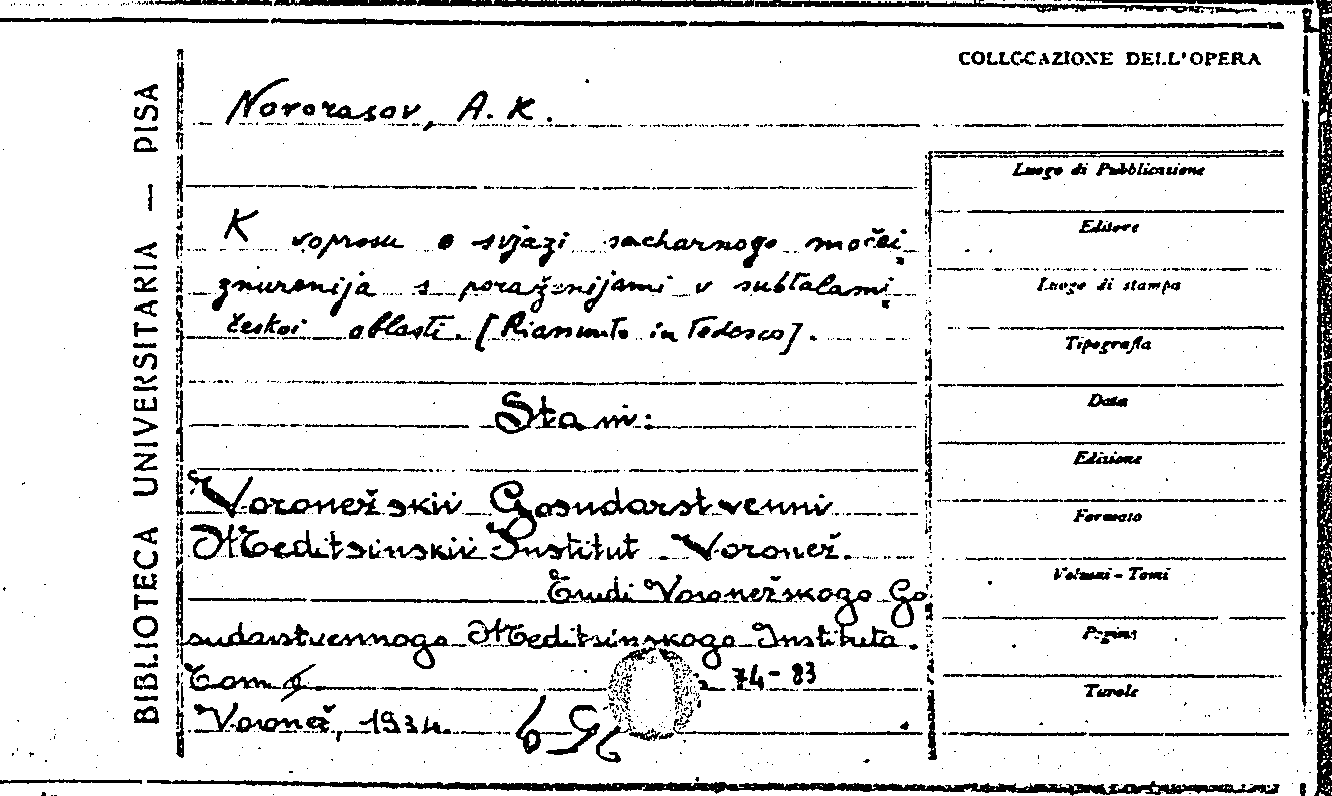 COLLOCAZIONE DELL'OPERA
BIBLIOTECA UNIVERSITARIA — PISA
Novorasov, A. K.
K voprosu o svjazi sacharnogo močei
znurenija s poraženijami v subtalami
českoi oblasti. [Riassunto in Tedesco].
Sta in:
Voronežskii Gosudarstvenni
Meditsinskii Institut. Voronež.
Trudi Voronežskogo Go
sudarstvennogo Meditsinskogo Instituta.
Tom
74-83
Voronež, 1934.
Luogo di Pubblicazione
Editore
Luogo di stampa
Tipografia
Data
Edizione
Formato
Volumi - Tomi
Pagine
Tavole